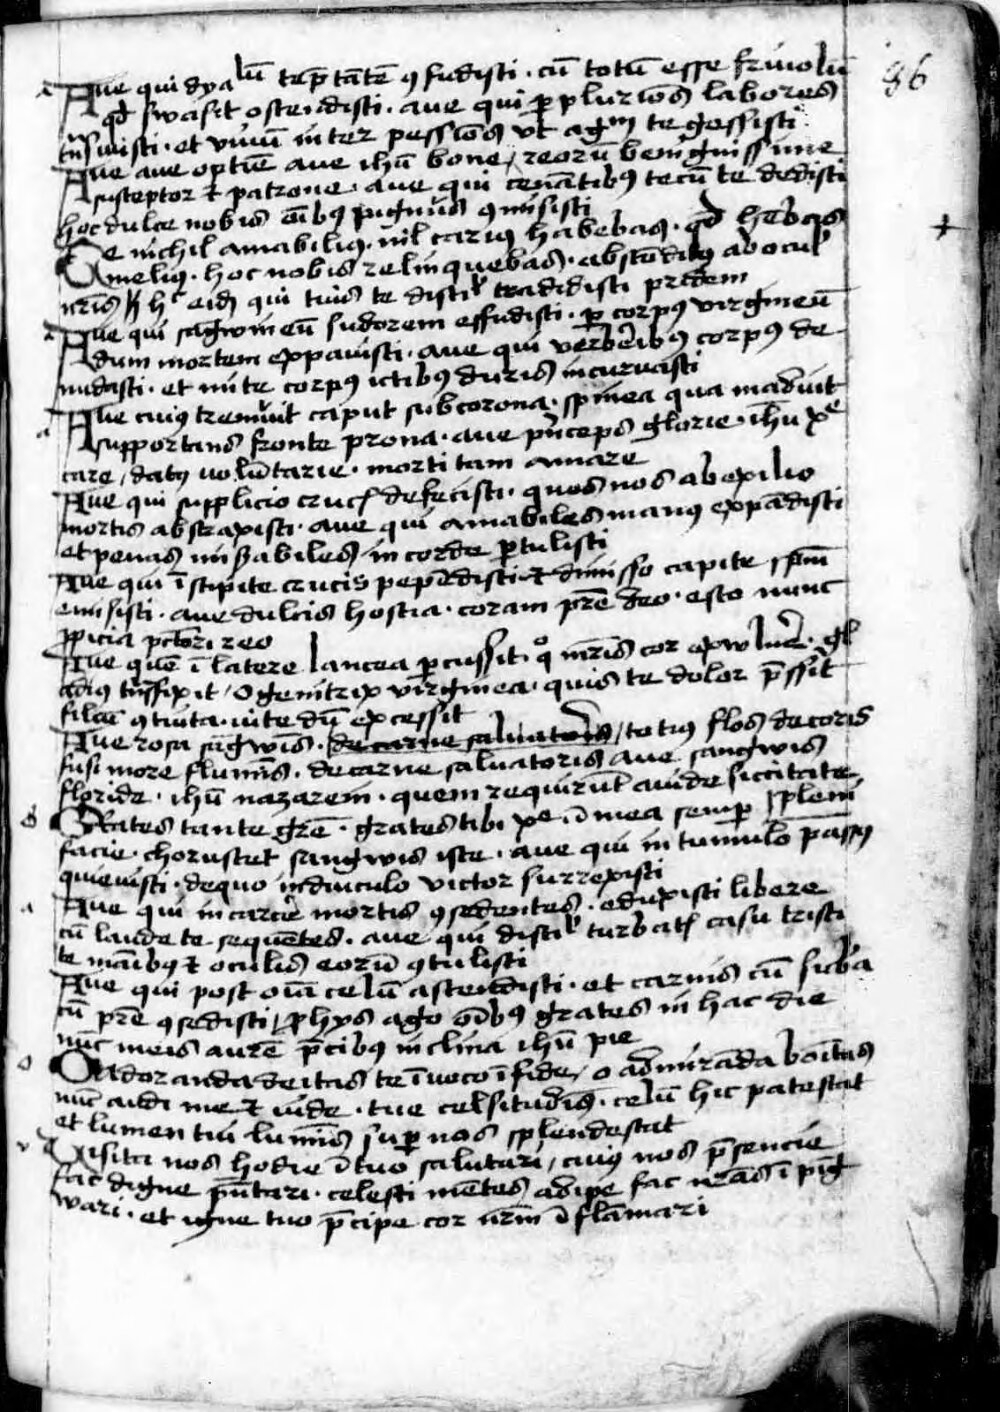 86
Aue qui dyalū tēptātē ꝯfudisti · cū totū esse friuolū
qđ swasit ostendisti · aue qui ꝑ plurīos labores
trāsiuisti · et vnū inter pessīos vt agnꝰ te gessisti
Aue aue optīe aue ihū bone / reorū benignissime
susceptor et patrone · aue qui cenātibꝰ tecū te dedisti
hoc dulce nobis oībꝰ pignus ꝯmisisti
Qe nichil amabiliꝰ · nil cariꝰ habebas · qđ hēbas
meliꝰ · hoc nobis relinquebas · abscōditꝰ ab ocul
nrīs hͨ eidē qui tuis te discil tradidisti pridem
Aue qui sāgwineū sudorem effudisti · ꝑ corpꝰ virgineū
dum mortem expauisti · aue qui verberibꝰ corpꝰ de
nudasti · et mite corpꝰ ictibꝰ duris incuruasti
Aue cuiꝰ tremuit caput sub corona · spinea qua maduit
supportans fronte prona · aue pīnceps glorie · ihū xᵉ
care / datꝰ uolūtarie · morti tam amare
Aue qui supplicio crucꝭ defecisti · quos nos ab exilio
mortis abstraxisti · aue qui amabiles manꝰ expādisti
et penas misabiles in corde ꝑtulisti
Aue qui ī stipite crucis pepēdisti et dimisso capite spm̄
emisisti · aue dulcis hostia · coram prē deo · esto nunc
ꝓpicia pctōri reo
Aue quē ī latere lancea ꝑcussit · qͦ mrīs cor exwlnē · gl
adiꝰ trāsfixit / O genitrix virginea · quis te dolor p̄ssit
filiū ꝯtuita · uite dū excessit
Aue rosa sāgwīs · de carne saluatoris / totiꝰ flos decoris
fusi more flumīs · de carne saluatoris aue sangwis
floride · ihū nazareni · quem requirūt auide siccitate
Grates tante grē · grates tibi xᵉ ī mea semꝑ spleni
facie · choruscet sangwis iste · aue qui in tumulo passꝰ
quieuisti · de quo in diuiculo victor surrexisti
Aue qui in carcē mortis ꝯsedentes · eduxisti libere
cū laude te sequētes · aue qui discil turbatꝭ casu tristi
te manibꝰ et oculis eorū ꝯtulisti
Aue qui post oīa celū ascendisti · et carnis cū suba
cū prē ꝯsedisti / ꝓ hys ago oībꝰ grates in hac die
nūc meis aurē p̄cibꝰ inclina ihū pie
O adoranda deitas te īuoco ī fide / o admirāda bōitas
nūc audi me et uide · tue celsitudīs · celū hic patescat
et lumen tui lumīs suꝑ nos splendescat
Uisita nos hodie ī tuo salutari / cuiꝰ nos p̄sencie
fac digne p̄ntari · celesti mētes adipe fac nrās ī pīg
wari · et igne tuo p̄cipe cor nrm̄ ī flāmari